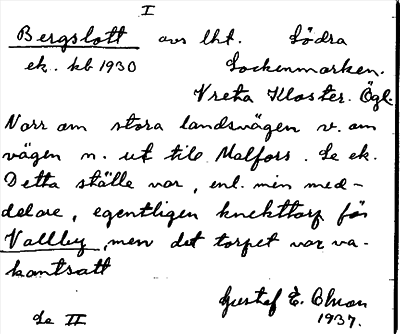 I
Bergslott avs lht. Södra
ek. kb 1930 Sockenmarken.
Vreta Kloster. Ögl.
Norr om stora landsvägen v. om
vägen n. ut till Malfors. Se ek.
Detta ställe var, enl. min med-
delare, egentligen knekttorp för
Vallby, men det torpet var va-
kantsatt
Gustef E.
Se II 1937.